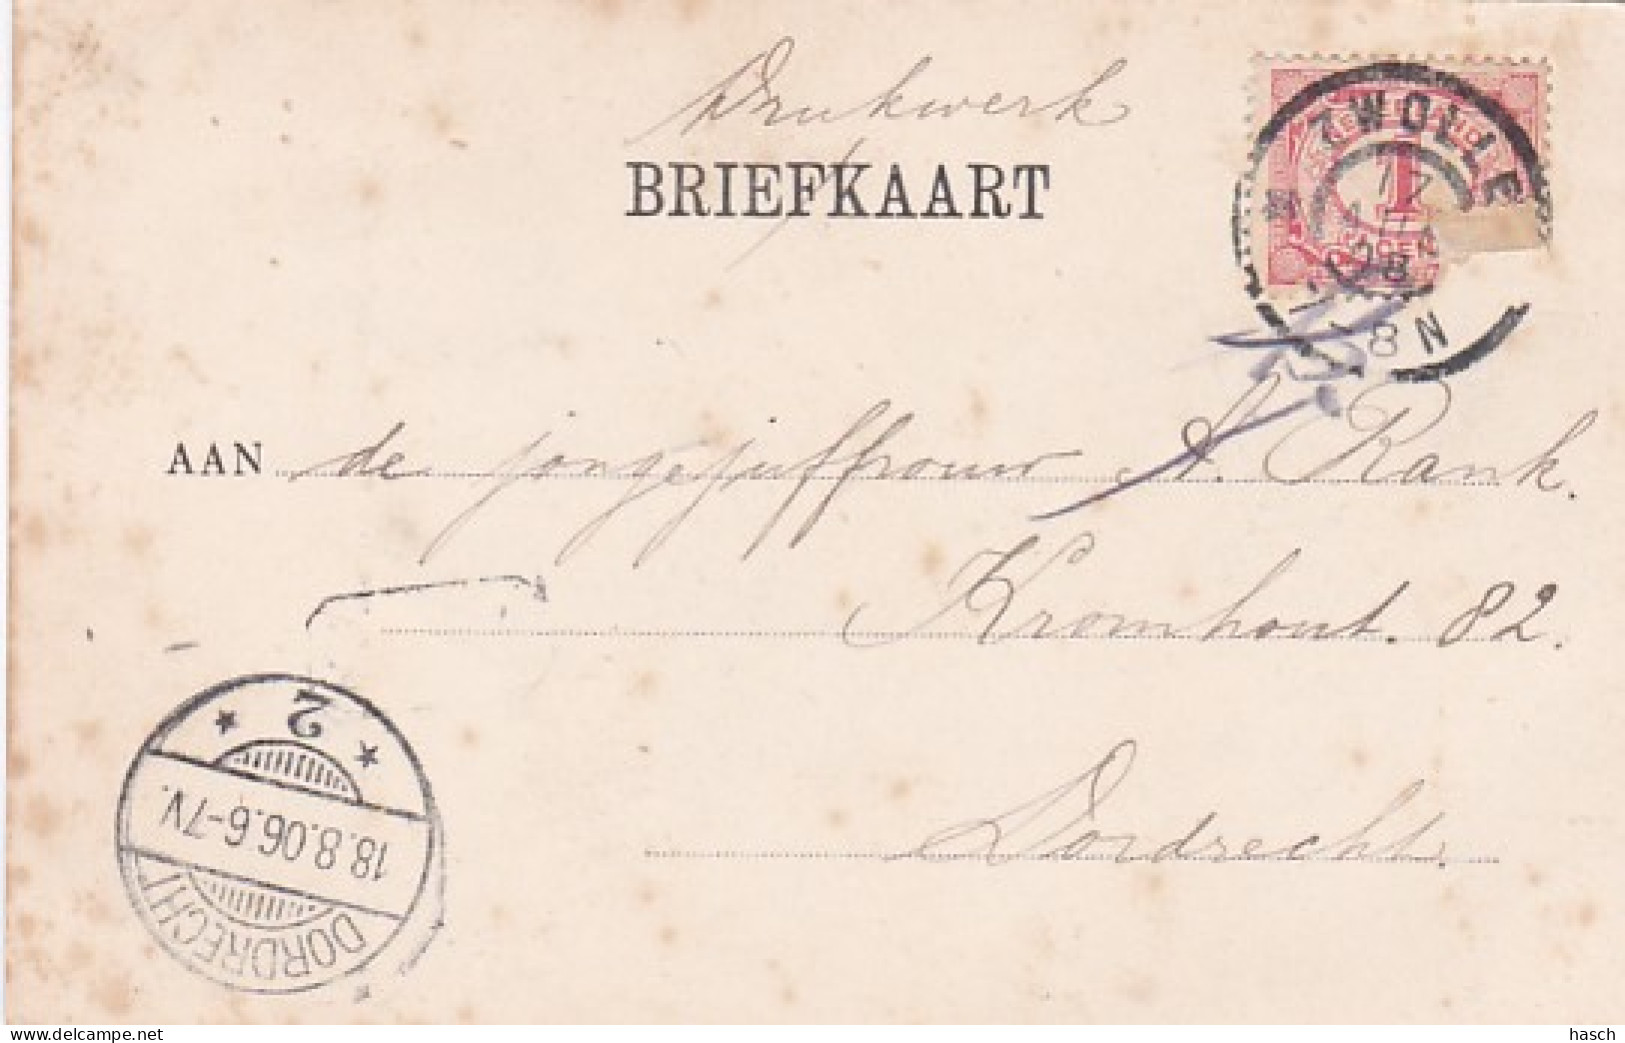 Drukwerk
BRIEFKAART
ZWOLLE
8 N
AAN de jongejuffrouw A. Rank.
Kromhout. 82.
Dordrecht.
2
18.8.06.6-7V.
DORDRECHT
www.delcampe.net
hasch